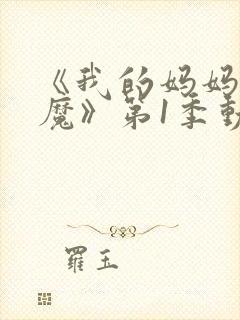 《我的妈妈
魔》第1季動
羅玉